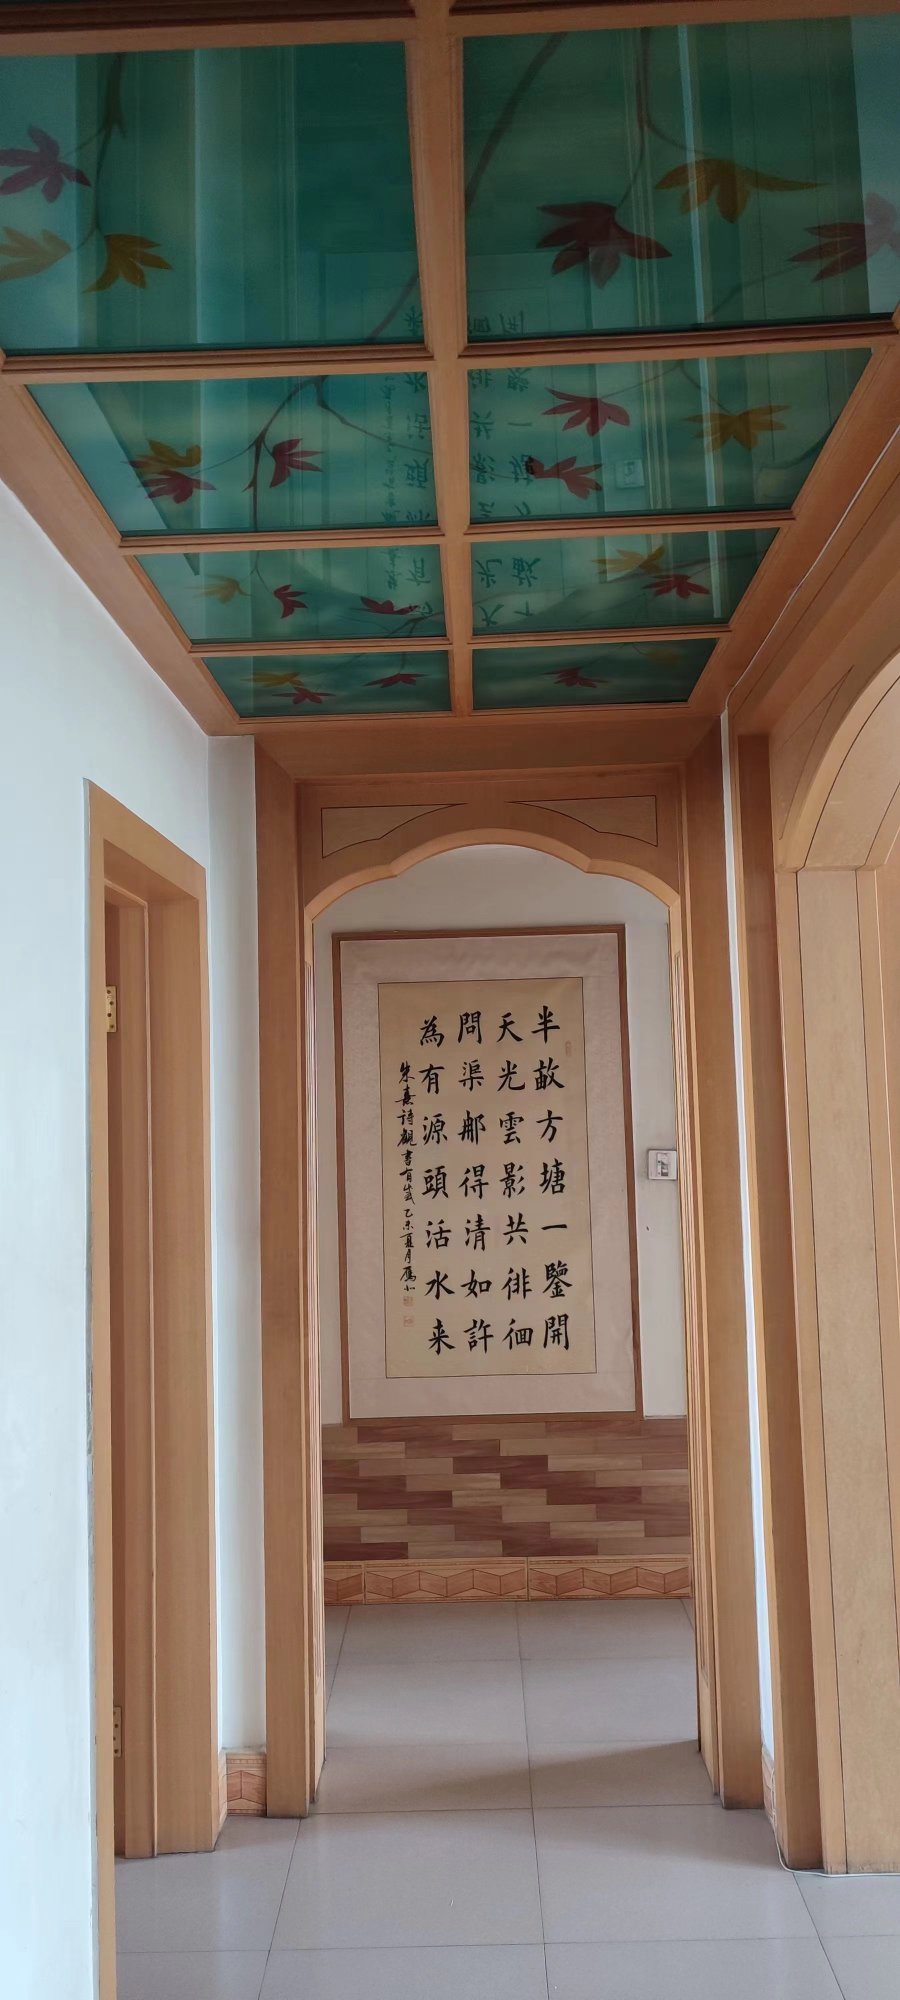 半畝方塘一鑒開
天光雲影共徘徊
問渠那得清如許
為有源頭活水来
朱熹詩觀書有感 乙未夏月